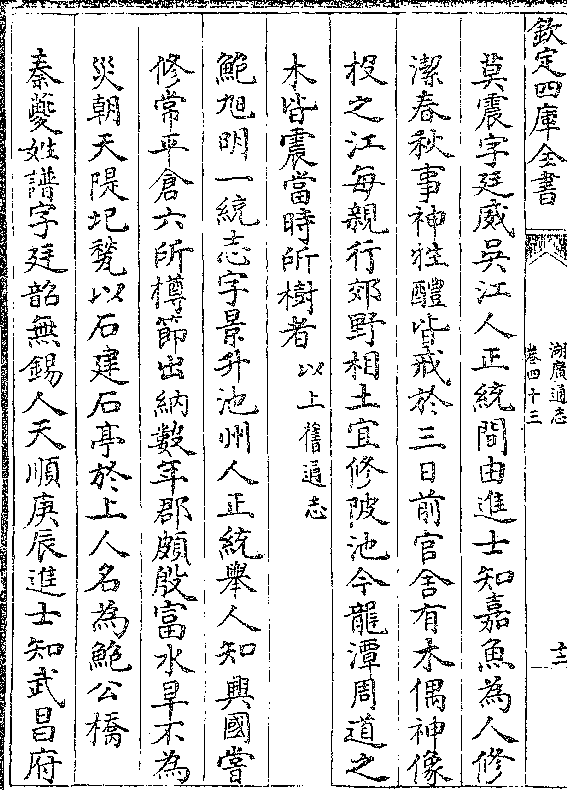 欽定四庫全書
湖廣通志
卷四十三
十二
莫震字廷威吳江人正統間由進士知嘉魚為人修
潔春秋事神牲醴皆戒於三日前官舍有木偶神像
投之江每親行郊野相土宜修陂池今龍潭周道之
木皆震當時所樹者以上舊通志
鮑旭明一統志字景升池州人正統舉人知興國嘗
修常平倉六所樽節出納數年郡頗殷富水旱不為
災朝天隄圮甃以石建石亭於上人名為鮑公橋
秦夔姓譜字廷韶無錫人天順庚辰進士知武昌府